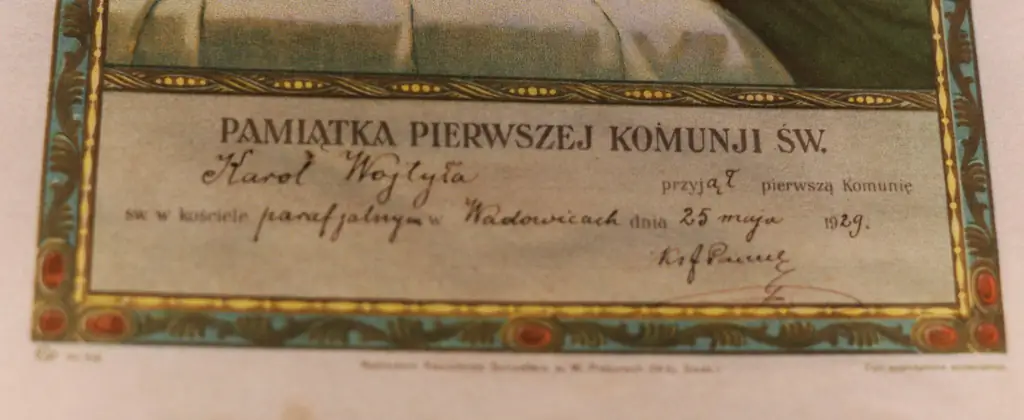 PAMIĄTKA PIERWSZEJ KOMUNJI ŚW.
Karol Wojtyła przyjął pierwszą Komunię
św. w kościele parafjalnym w Wadowicach dnia 25 maja 1929.
Ks